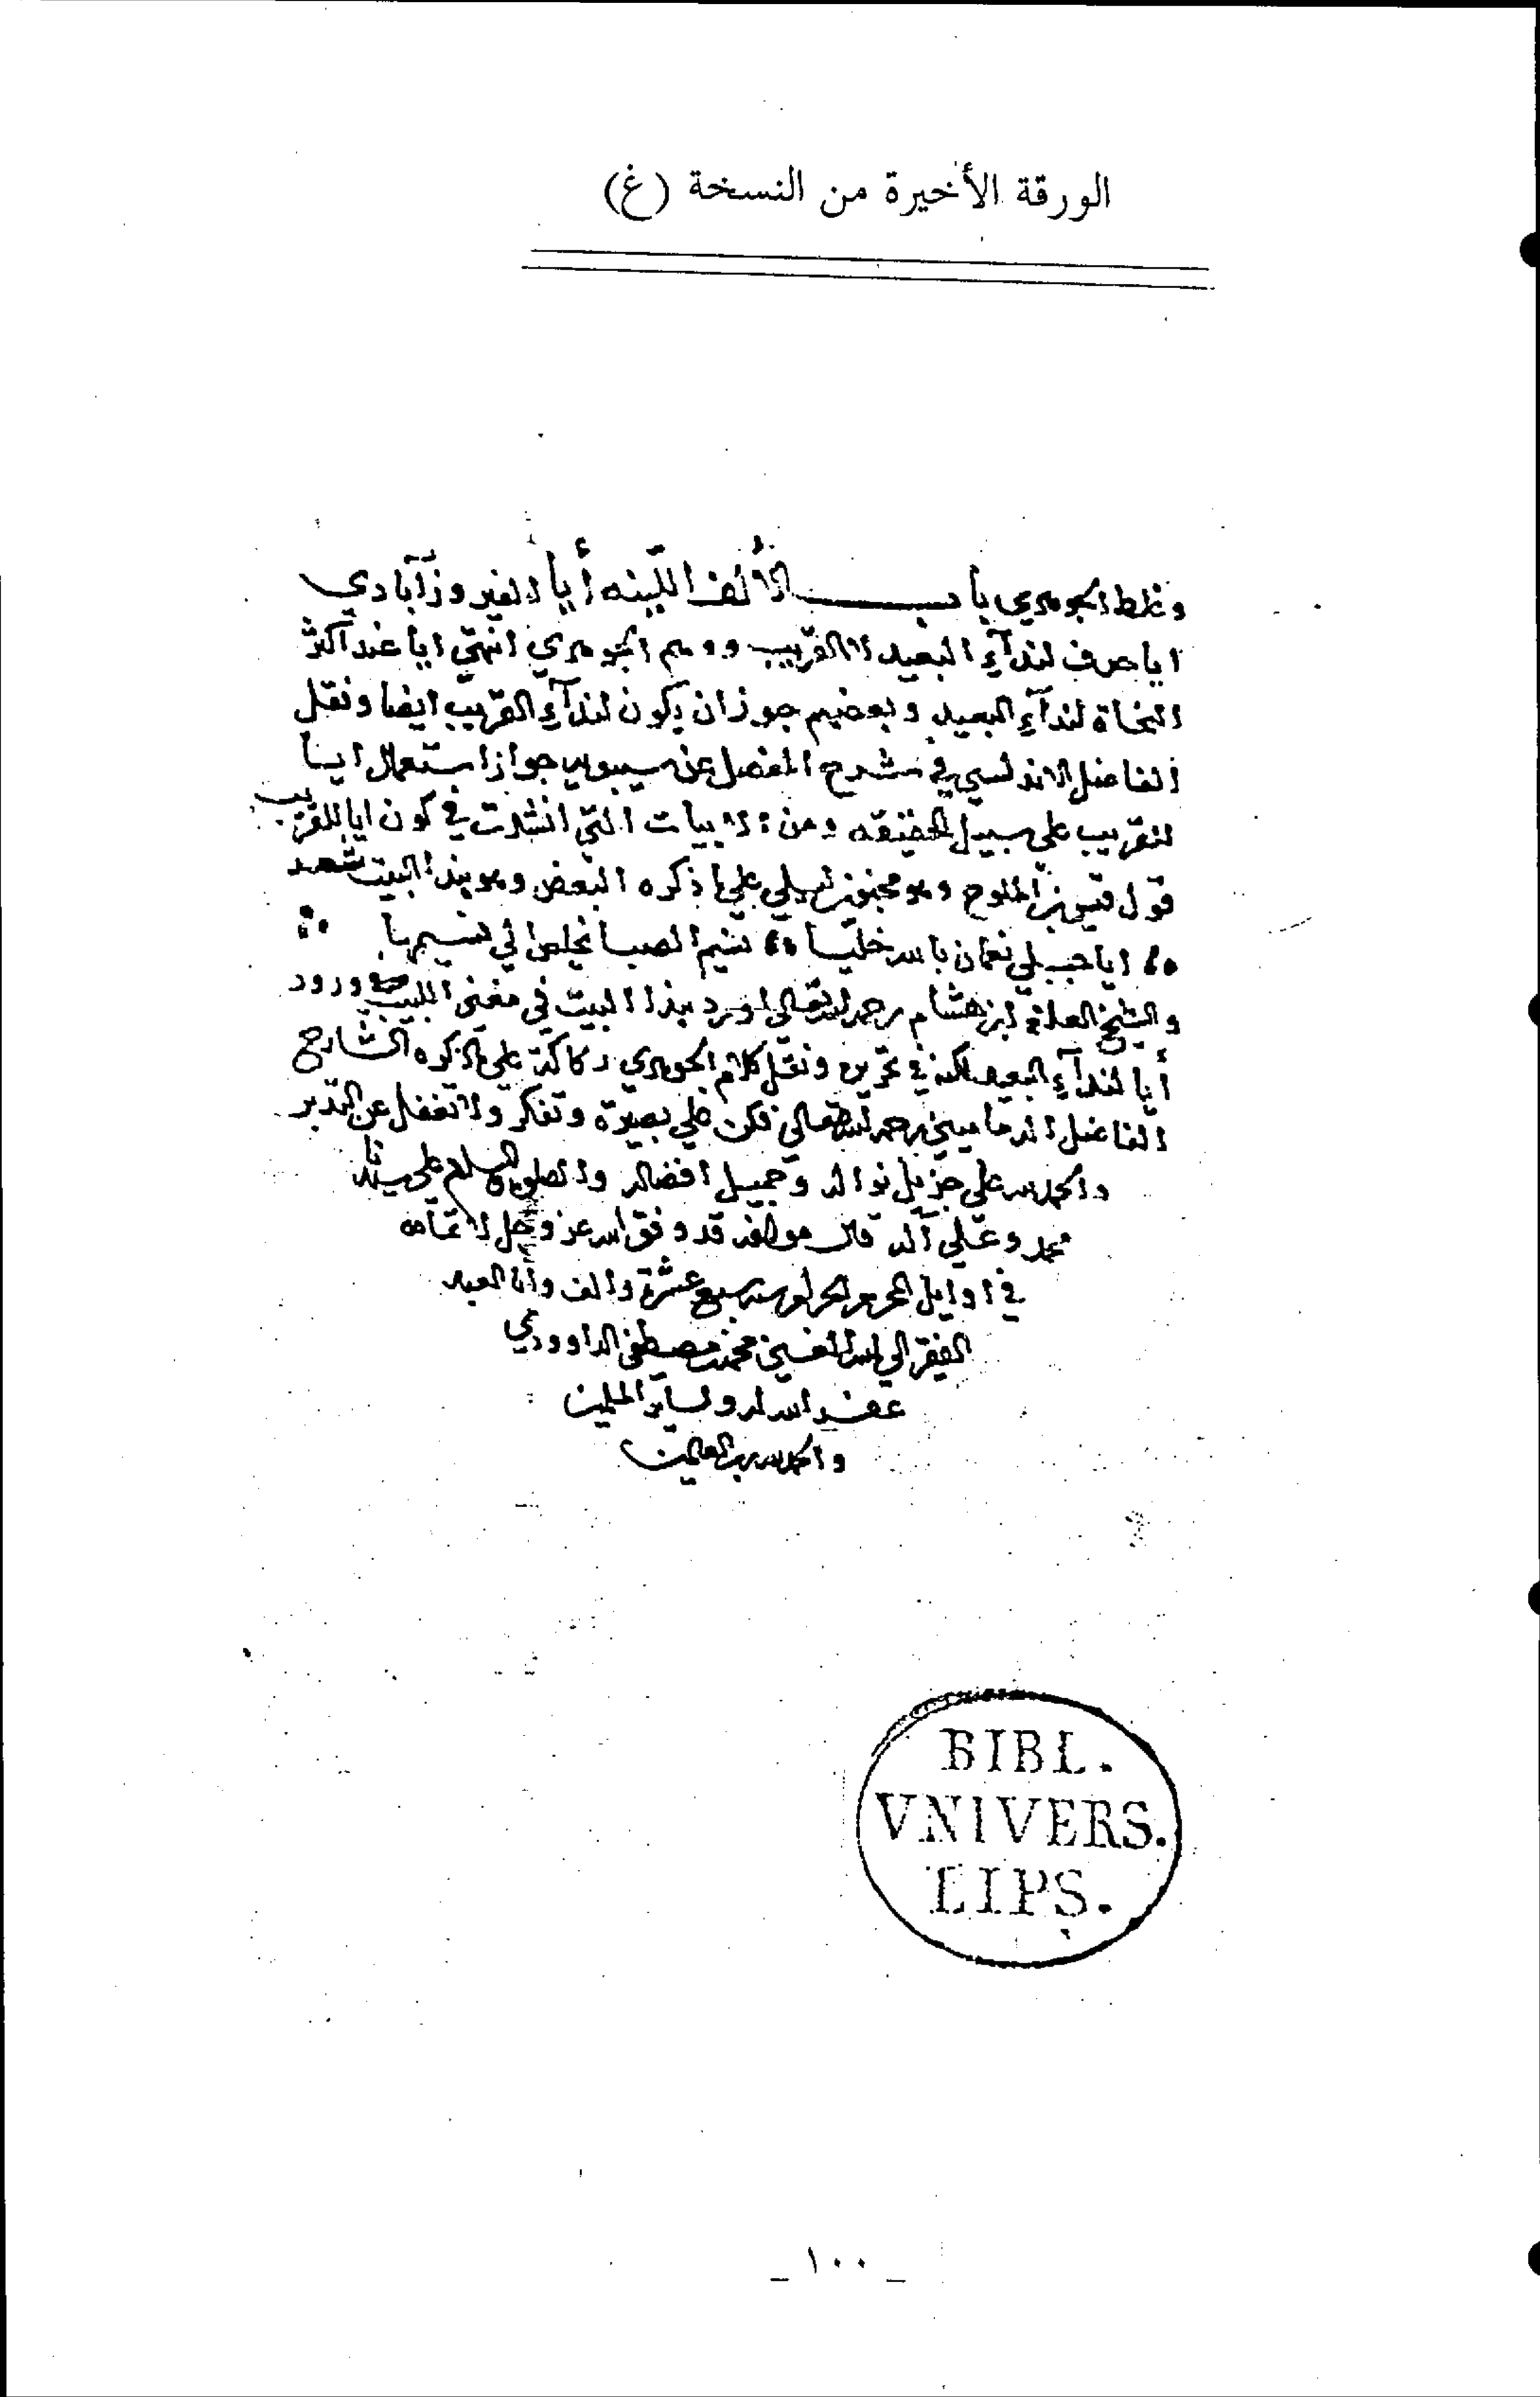 الورقة الأخيرة من النسخة (غ)
وغلط الجوهري يا باب الألف اللينه أيا الفيروزآبادي
ايا حرف لندآء البعيد لا القريب ووهم الجوهري انتهى ايا عند اكثر
النحاة لندآء البعيد وبعضهم جوز ان يكون لندآء القريب ايضا ونقل
الفاضل الاندلسي في شرح المفصل عن سيبويه جواز استعمال ايا
للقريب على سبيل الحقيقه ومن الابيات التي انشدت في كون ايا للقريب
قول قيس بن الملوح وهو مجنون ليلي علي ما ذكره البعض وهو هذا البيت شعر
ايا جبلي نعمان بالله خليا نسيم الصبا يخلص الي نسيمها
والشيخ العلامة ابن هشام رحمه الله تعالى اورد هذا البيت في مغني اللبيب ورود
أيا لندآء البعيد لكنه في تحريره ونقل كلام الجوهري ركاكة علي ما ذكره الشارح
الفاضل الدماميني رحمه الله تعالى فكن علي بصيرة وتفكر ولا تغفل عن التدبر
والحمد لله على جزيل نواله وجميل افضاله والصلوة والسلام على سيدنا
محمد وعلى آله قال مولفه قد وفق الله عز وجل لاتمامه
في اوايل المحرم الحرام لسنة سبع عشرة والف وأنا العبد
الفقير الي الله الغني محمد بن مصطفى الداوودي
عفى الله له ولساير المسلمين
والحمد لله رب العالمين
BIBL.
VNIVERS.
LIPS.
_ ١٠٠ _